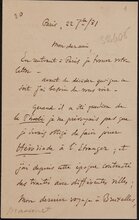 Paris, 22 7bre/81
Mon cher ami
En rentrant à Paris je trouve votre
lettre.
avant de décider quoi que ce
soit j'ai besoin de vous voir.
Quand il a été question de
la Thodé je ne prévoyais pas que
j'avais obligé de faire jouer
Hérodiade à l'Etranger, et
j'ai depuis cette époque contracté
des traités aux différentes villes.
Mon dernier voyage à Bruxelles